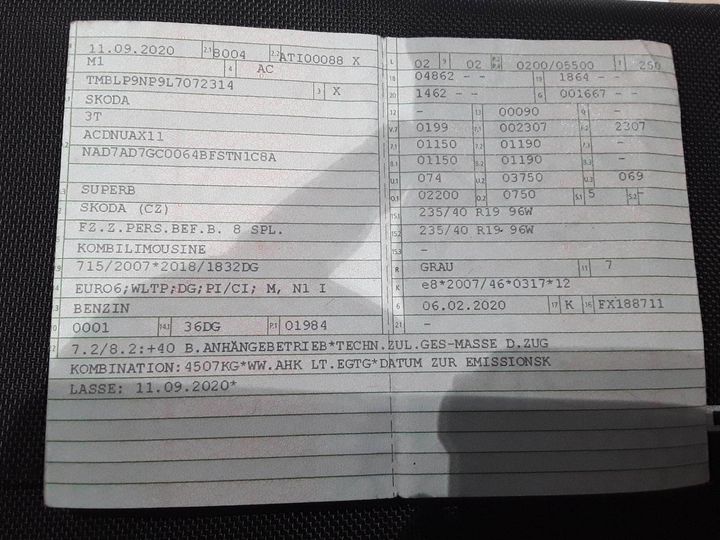 11.09.2020 2.1 8004 2.2 ATI00088 X
M1 4 AC
TMBLP9NP9L7072314 3 X
SKODA
3T
ACDNUAX11
NAD7AD7GC0064BFSTN1C8A
SUPERB
SKODA (CZ)
FZ.Z.PERS.BEF.B. 8 SPL.
KOMBILIMOUSINE
715/2007*2018/1832DG
EURO6;WLTP;DG;PI/CI; M, N1 I
BENZIN
0001 14.1 36DG P.1 01984
7.2/8.2:+40 B.ANHÄNGEBETRIEB*TECHN.ZUL.GES-MASSE D.ZUG
KOMBINATION:4507KG*WW.AHK LT.EGTG*DATUM ZUR EMISSIONSK
LASSE: 11.09.2020*
L 02 9 02 0200/05500 T 250
18 04862 - - 19 1864 - -
20 1462 - - G 001667 - -
12 - 13 00090 Q -
V.7 0199 F.1 002307 F.2 2307
7.1 01150 7.2 01190 7.3 -
8.1 01150 8.2 01190 8.3 -
U.1 074 U.2 03750 U.3 069
O.1 02200 O.2 0750 S.1 5 S.2 -
15.1 235/40 R19 96W
15.2 235/40 R19 96W
15.3 -
R GRAU 11 7
K e8*2007/46*0317*12
6 06.02.2020 17 K 16 FX188711
21 -